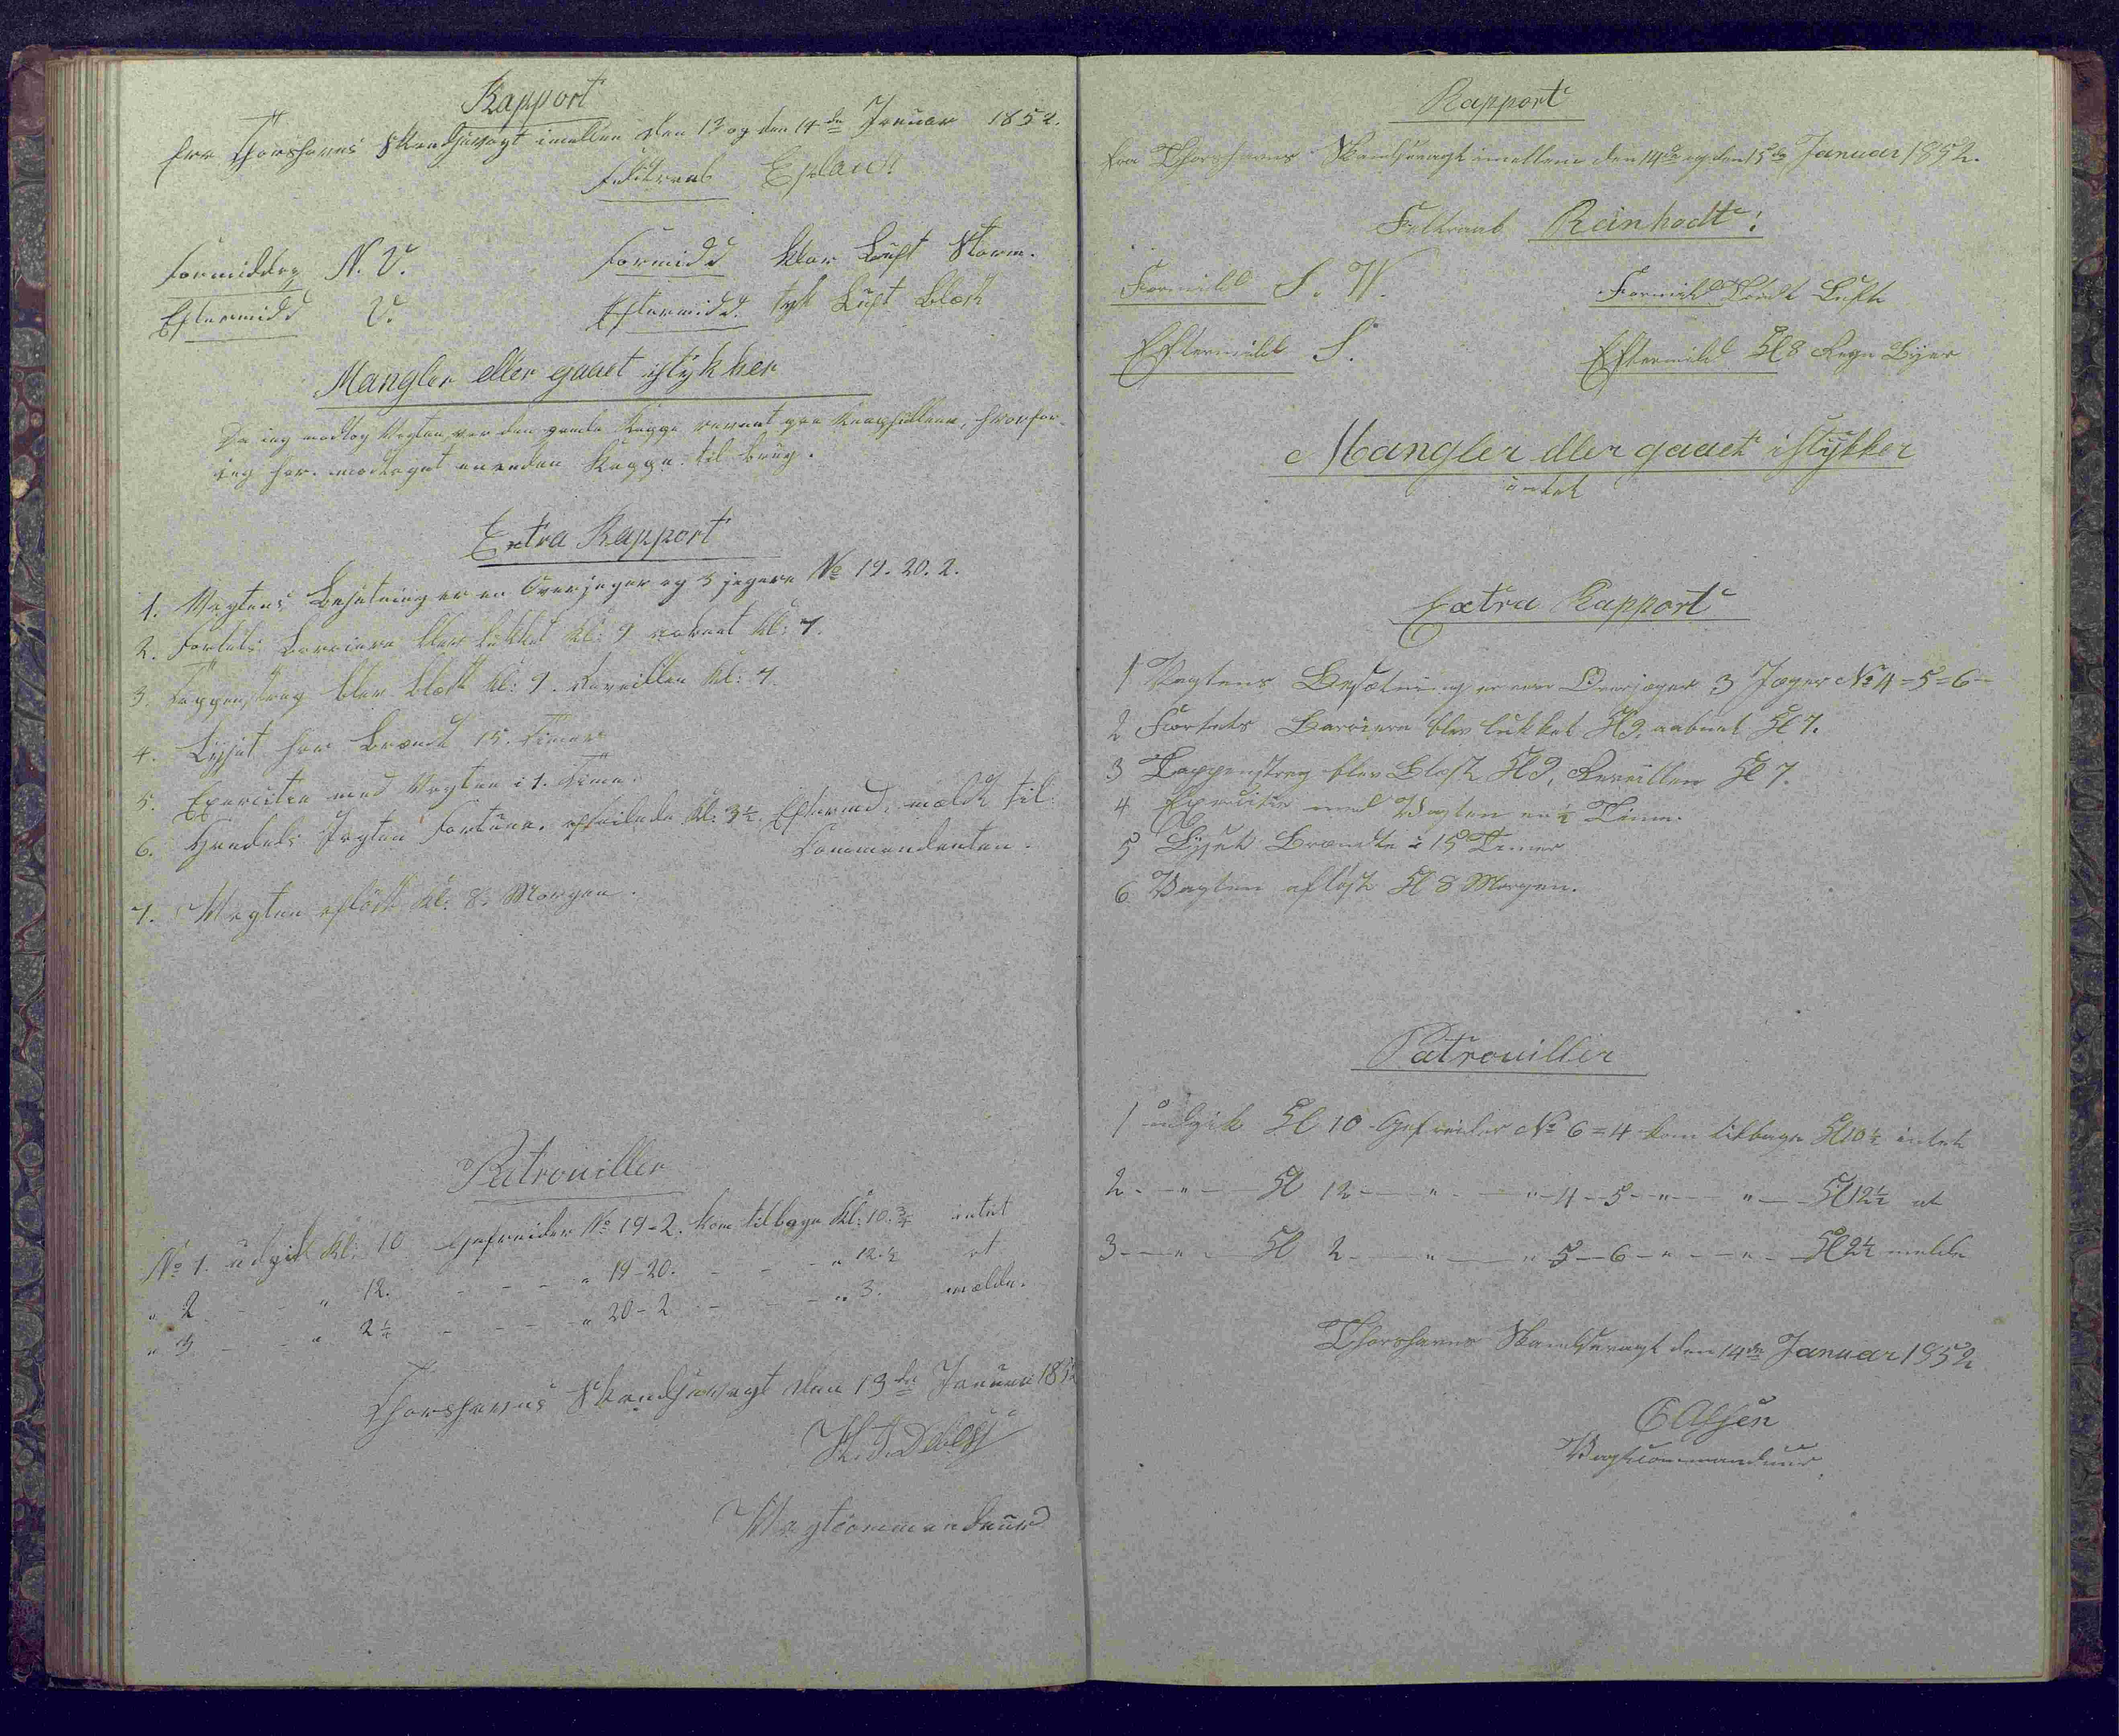 Rapport
fra Thorshavns Skandsevagt imellem den 13 og den 14de Januar 1852.
Feltraab
Formiddag N. V. Formidd klar Luft Storm.
Eftermidd V. Eftermidd. tyk Luft Blæst
Mangler eller gaaet istykker
Da jeg modtog Vagten var den gamle Kappe revent paa, hvorfor
jeg har modtaget en anden Kappe til brug.
Extra Rapport
1. Vagtens Besætning er en Overjæger og 3 jægere No 19. 20. 2.
2. Fortets Barriere blev lukket Kl: 9 aabnet Kl: 7.
3. Tappenstreg blev blæst Kl: 9. Reveillen Kl: 7.
4. Lyset har brændt 15. Timer
5. Exercitie med Vagten i 1. Time.
6. Handels Jagten Fortuna. afseilede Kl: 3½ Eftermd. meldt til
Commandanten.
7. Vagten afløst Kl: 8. Morgen.
Patrouiller
No 1. udgik Kl: 10 Gefreider No 19-2. kom tilbage Kl: 10.¾ intet
" 2 - - " 12. - - - " 19-20. - - - " 12.¾ at
" 3 - - " 2¼ - - - " 20-2 - - - " 3. melde.
Thorshavns Skandsevagt den 13de Januar 185
Vagtcommandeur
Rapport
fra Thorshavns Skandsevagt imellem den 14de og den 15de Januar 1852.
Feltraab Reinhodt!
Formidd S. W. Formidd Luft
Eftermidd S. Eftermidd Kl 8 Regn Byer
Mangler eller gaaet istykker
intet
Extra Rapport
1 Vagtens Besætning er een Overjæger 3 Jæger No 4=5=6-
2 Fortets Barriere blev lukket Kl 9, aabnet Kl 7.
3 Tappenstreg blev Blæst Kl 9, Reveillen Kl 7.
4 Exercitie med Vagten en ½ Time.
5 Lyset Brændte i 15 Timer
6 Vagten afløst Kl 8 Morgen.
Patrouiller
1 udgik Kl 10 Gefreider No 6=4 kom tilbage Kl 10½ intet
2 - " - Kl 12 - " - " - 4 - 5 - " - " - Kl 12½ at
3 - " - Kl 2 - " - " 5 - 6 - " - " - Kl 2½ melde
Thorshavns Skandsevagt den 14de Januar 1852
Olsen
Vagtcommandeur